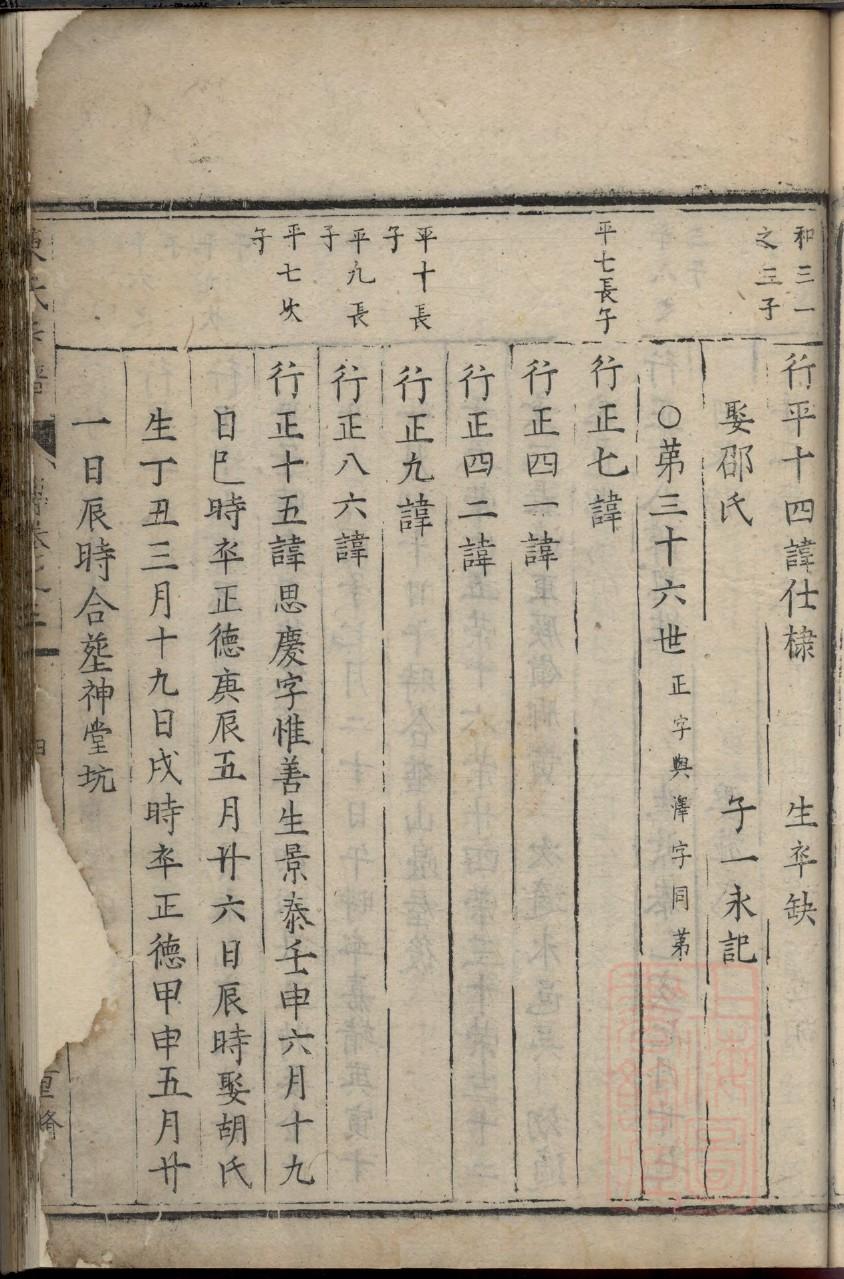 和三一
之三子
行平十四諱仕棣 生卒缺
娶邵氏 子一永記
○苐三十六世 正字與澤字同苐
平七長子
行正七諱
行正四一諱
行正四二諱
平十長
子
行正九諱
平九長
子
行正八六諱
平七次
子
行正十五諱思慶字惟善生景泰壬申六月十九
日巳時卒正德庚辰五月廿六日辰時娶胡氏
生丁丑三月十九日戌時卒正德甲申五月廿
一日辰時合塟神堂坑
重脩